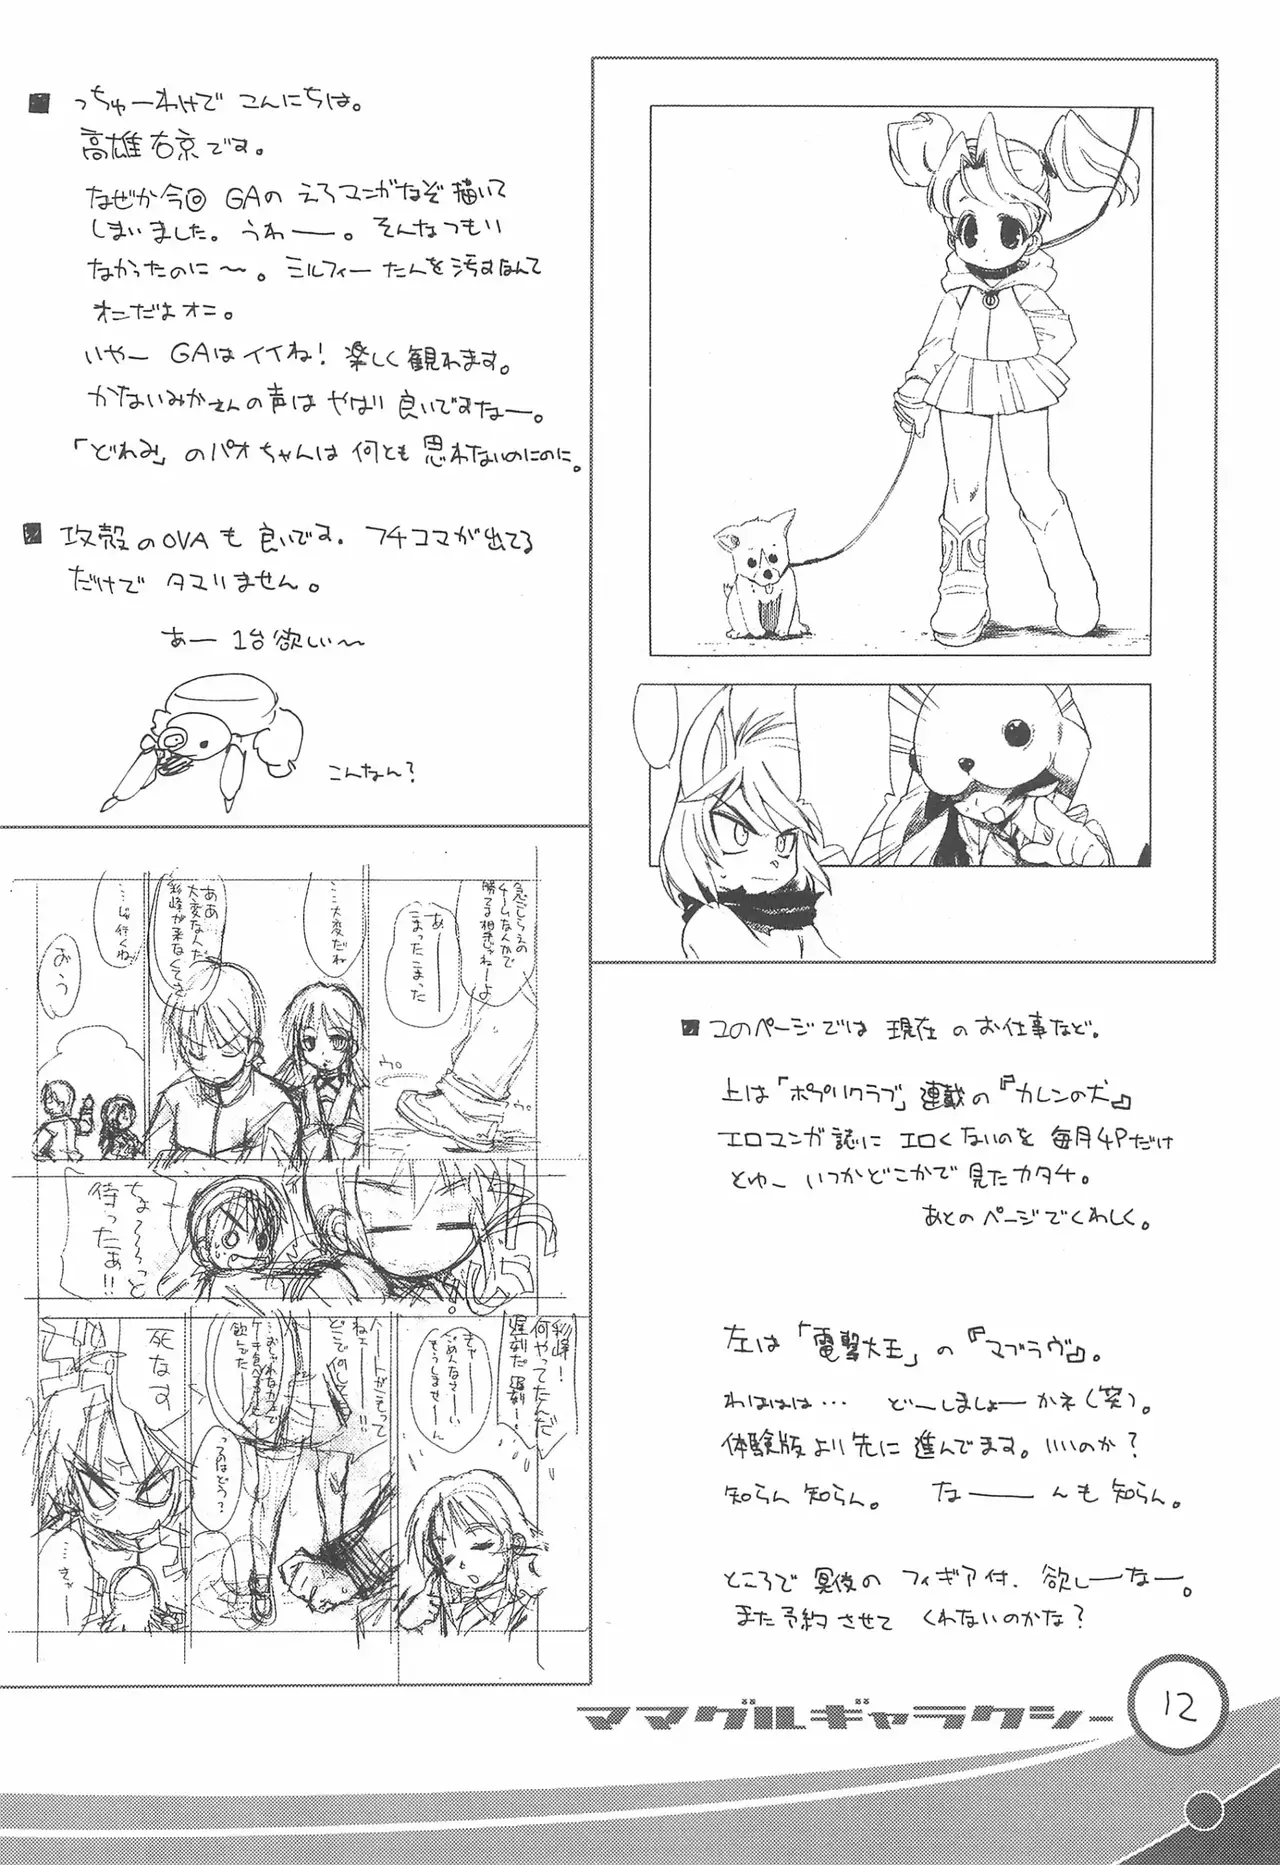 ■ っちゅーわけで こんにちは。
高雄右京です。
なぜか今回 GAの えろマンガなぞ 描いて
しまいました。うわー。そんなつもり
なかったのに〜。ミルフィーたんを汚すなんて
オニだよオニ。
いやー GAはイイね! 楽しく観れます。
かないみかさんの声は やはり 良いですなー。
「どれみ」のパオちゃんは 何とも 思わないのにのに。
■ 攻殻のOVAも 良いです。フチコマが出てる
だけで タマリません。
あー 1台欲しい〜
こんなん?
急ごしらえの
チームなんかで
勝てる相手じゃねーよ
あーー
まったまった
…大変だね
ああ…
大変なんだ
彩峰が来なくてさ
…じゃ行くね
おう
ちょ〜〜っと
待ったぁ!!
彩峰!
何やってたんだ
遅刻だ 遅刻ー!
きゃー
ごめんなさーい
もうしませーん
…おしゃれなカフェで
ケーキ食べてコーヒー
飲んでた…
ってのはどう?
死なす
…きゃー
■ このページでは 現在 のお仕事など。
上は「ポプリクラブ」連載の『カレンの犬』
エロマンガ誌に エロくないのを 毎月4Pだけ
とゆー いつかどこかで 見たカタチ。
あとのページでくわしく。
左は「電撃大王」の『マブラヴ』。
わははは… どーしましょーかネ(笑)。
体験版より先に 進んでます。いいのか?
知らん 知らん。 なーーんも 知らん。
ところで 冥夜の フィギア付、欲しーなー。
また予約させて くれないのかな?
ママグルギャラクシー
12